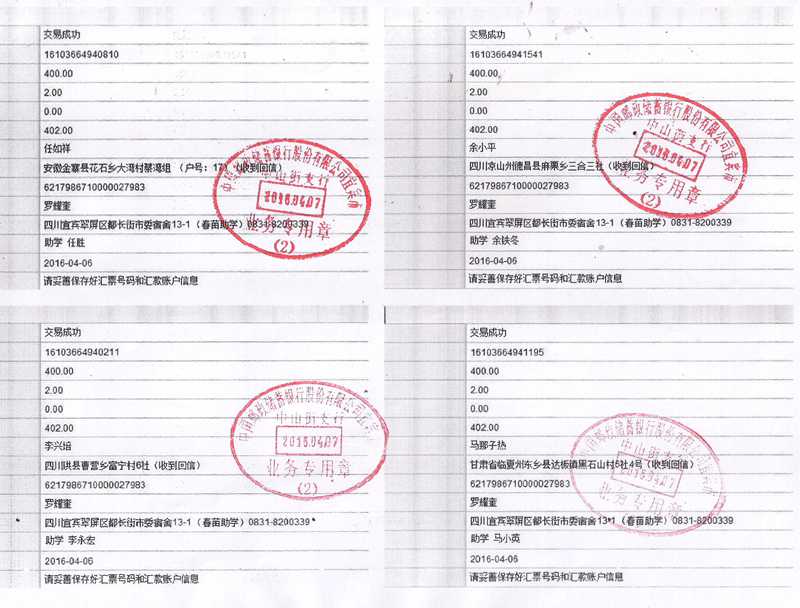 交易成功
16103664940810
400.00
2.00
0.00
402.00
任如祥
安徽金寨县花石乡大湾村蔡湾组 （户号：171 （收到回信）
6217986710000027983
罗耀奎
四川宜宾翠屏区都长街市委宿舍13-1（春苗助学）0831-8200339
助学 任胜
2016-04-06
请妥善保存好汇票号码和汇款账户信息
中国邮政储蓄银行股份有限公司宜宾市
中山街支行
2016.04.07
业务专用章
(2)
交易成功
16103664941541
400.00
2.00
0.00
402.00
余小平
四川凉山州德昌县麻栗乡三合三社（收到回信）
6217986710000027983
罗耀奎
四川宜宾翠屏区都长街市委宿舍13-1（春苗助学）0831-8200339
助学 余轶冬
2016-04-06
请妥善保存好汇票号码和汇款账户信息
中国邮政储蓄银行股份有限公司宜宾市
中山街支行
2016.04.07
业务专用章
(2)
交易成功
16103664940211
400.00
2.00
0.00
402.00
李兴培
四川珙县曹营乡富宁村6社（收到回信）
6217986710000027983
罗耀奎
四川宜宾翠屏区都长街市委宿舍13-1（春苗助学）0831-8200339
助学 李永宏
2016-04-06
请妥善保存好汇票号码和汇款账户信息
中国邮政储蓄银行股份有限公司宜宾市
中山街支行
2016.04.07
业务专用章
(2)
交易成功
16103664941195
400.00
2.00
0.00
402.00
马那子热
甘肃省临夏州东乡县达板镇黑石山村6社4号（收到回信）
6217986710000027983
罗耀奎
四川宜宾翠屏区都长街市委宿舍13-1（春苗助学）0831-8200339
助学 马小英
2016-04-06
请妥善保存好汇票号码和汇款账户信息
中国邮政储蓄银行股份有限公司宜宾市
中山街支行
2016.04.07
业务专用章